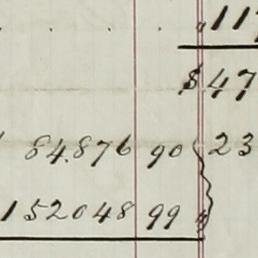 " 117
$ 47
84.876 90 23
152048 99 "